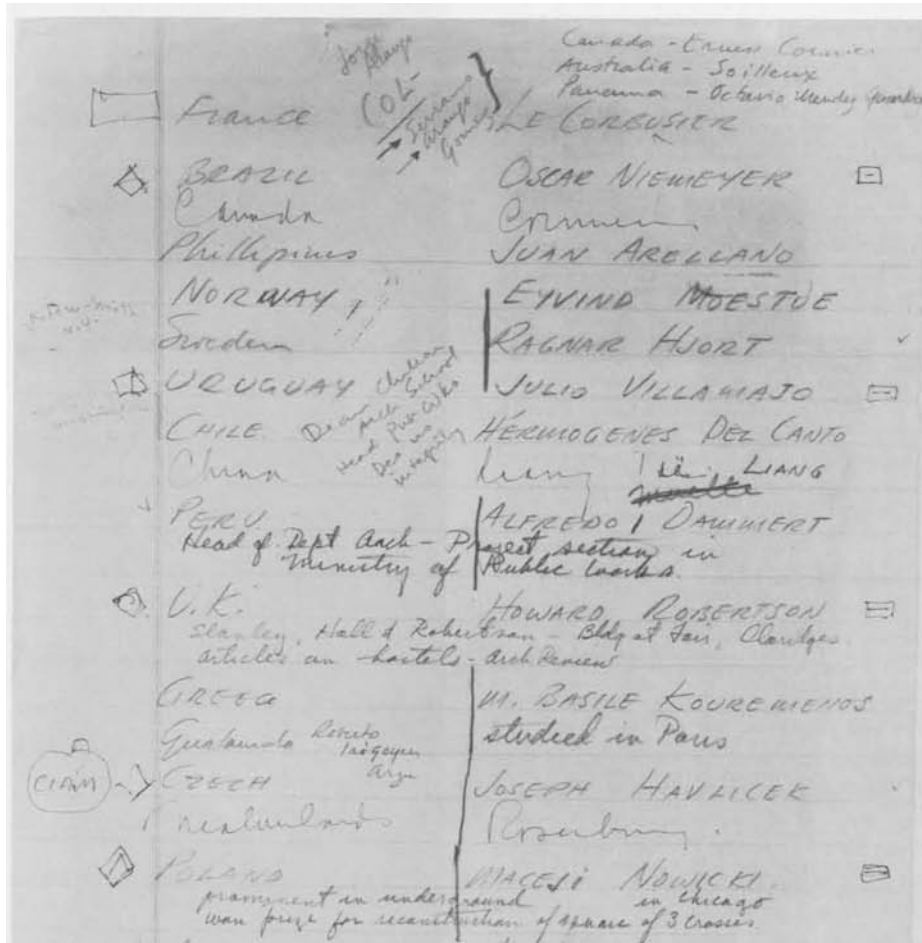 Canada - Ernest Cormier
Australia - Soilleux
Panama - Octavio Mendez Guardia
Jorge
Arango
COL-
Serrano
Arango
Gomez
France LE CORBUSIER
BRAZIL OSCAR NIEMEYER
Canada Cormier
Phillipines JUAN ARELLANO
NORWAY EYVIND MOESTUE
Sweden RAGNAR HJORT
URUGUAY JULIO VILLAMAJO
Dean Chilean
Arch School
Head Pub Wks
Dea in
integrity
CHILE HERMOGENES DEL CANTO
China Liang LIANG
PERU ALFREDO DAMMERT
Head of Dept Arch - Project section in
Ministry of Public Works
U.K. HOWARD ROBERTSON
Stanley, Hall & Robertson - Bldg at Fair, Claridges
articles on hostels - Arch Review
GREEC M. BASILE KOUREMENOS
Guatamala Roberto studied in Paris
CIAM CZECH JOSEPH HAVLICEK
Rosenburg
POLAND MACEJI NOWICKI
prominent in underground in Chicago
won prize for reconstruction of square of 3 crosses